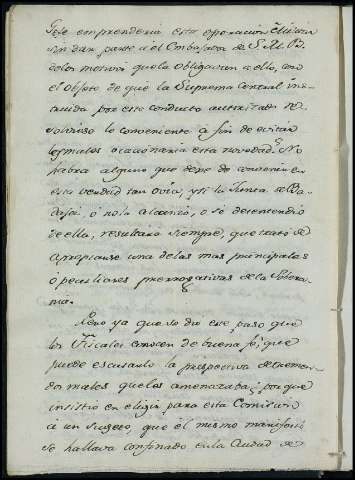 Gefe emprenderia esta operacion Militar
sin dar parte a el Embaxador de S. M. B.
de los motivos que la obligavan a ello, con
el Objeto de que la Suprema Central ins-
truida por este conducto autorizado re-
solviese lo conveniente à fin de evitar
los males ocacionaria esta novedad? No
habra alguno que dexe de convenir en
esta verdad tan óvia, y si la Junta de Ba-
dajoz, ó no la alcanzó, o se desentendió
de ella, resultará siempre, que trató de
apropiarse una de las mas principales
ò peculiares prerrogativas de la Sobera-
nia.
Pero ya que se dio este paso que
los Fiscales conocen de buena fe, que
puede escusarlo la prespectiva de tremen-
dos males que los amenazaba; por que
insistio en eligir para esta Comision
à un Sugeto, que él mismo manifestó
se hallava confinado en la Ciudad de